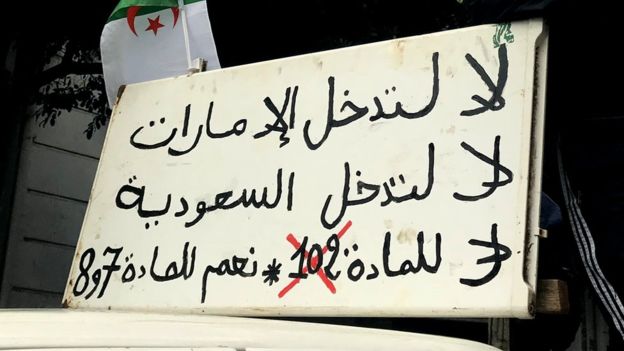 لا لتدخل الإمارات
لا لتدخل السعودية
لا للمادة 102 * نعم للمادة 7 و 8